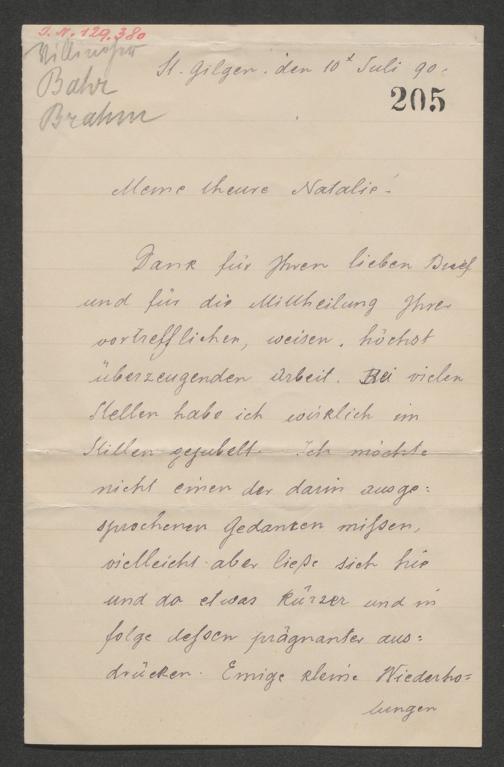 J. N. 129.380
Villinger
Bahr
Brahm
St. Gilgen. den 10t Juli 90.
205
Meine theure Natalie!
Dank für Ihren lieben Brief
und für die Mittheilung Ihrer
vortrefflichen, weisen, höchst
überzeugenden Arbeit. Bei vielen
Stellen habe ich wirklich im
Stillen gejubelt. Ich möchte
nicht einen der darin ausge:
sprochenen Gedanken mißen,
vielleicht aber ließe sich hie
und da etwas kürzer und in
folge deßen prägnanter aus:
drücken. Einige kleine Wiederho=
lungen